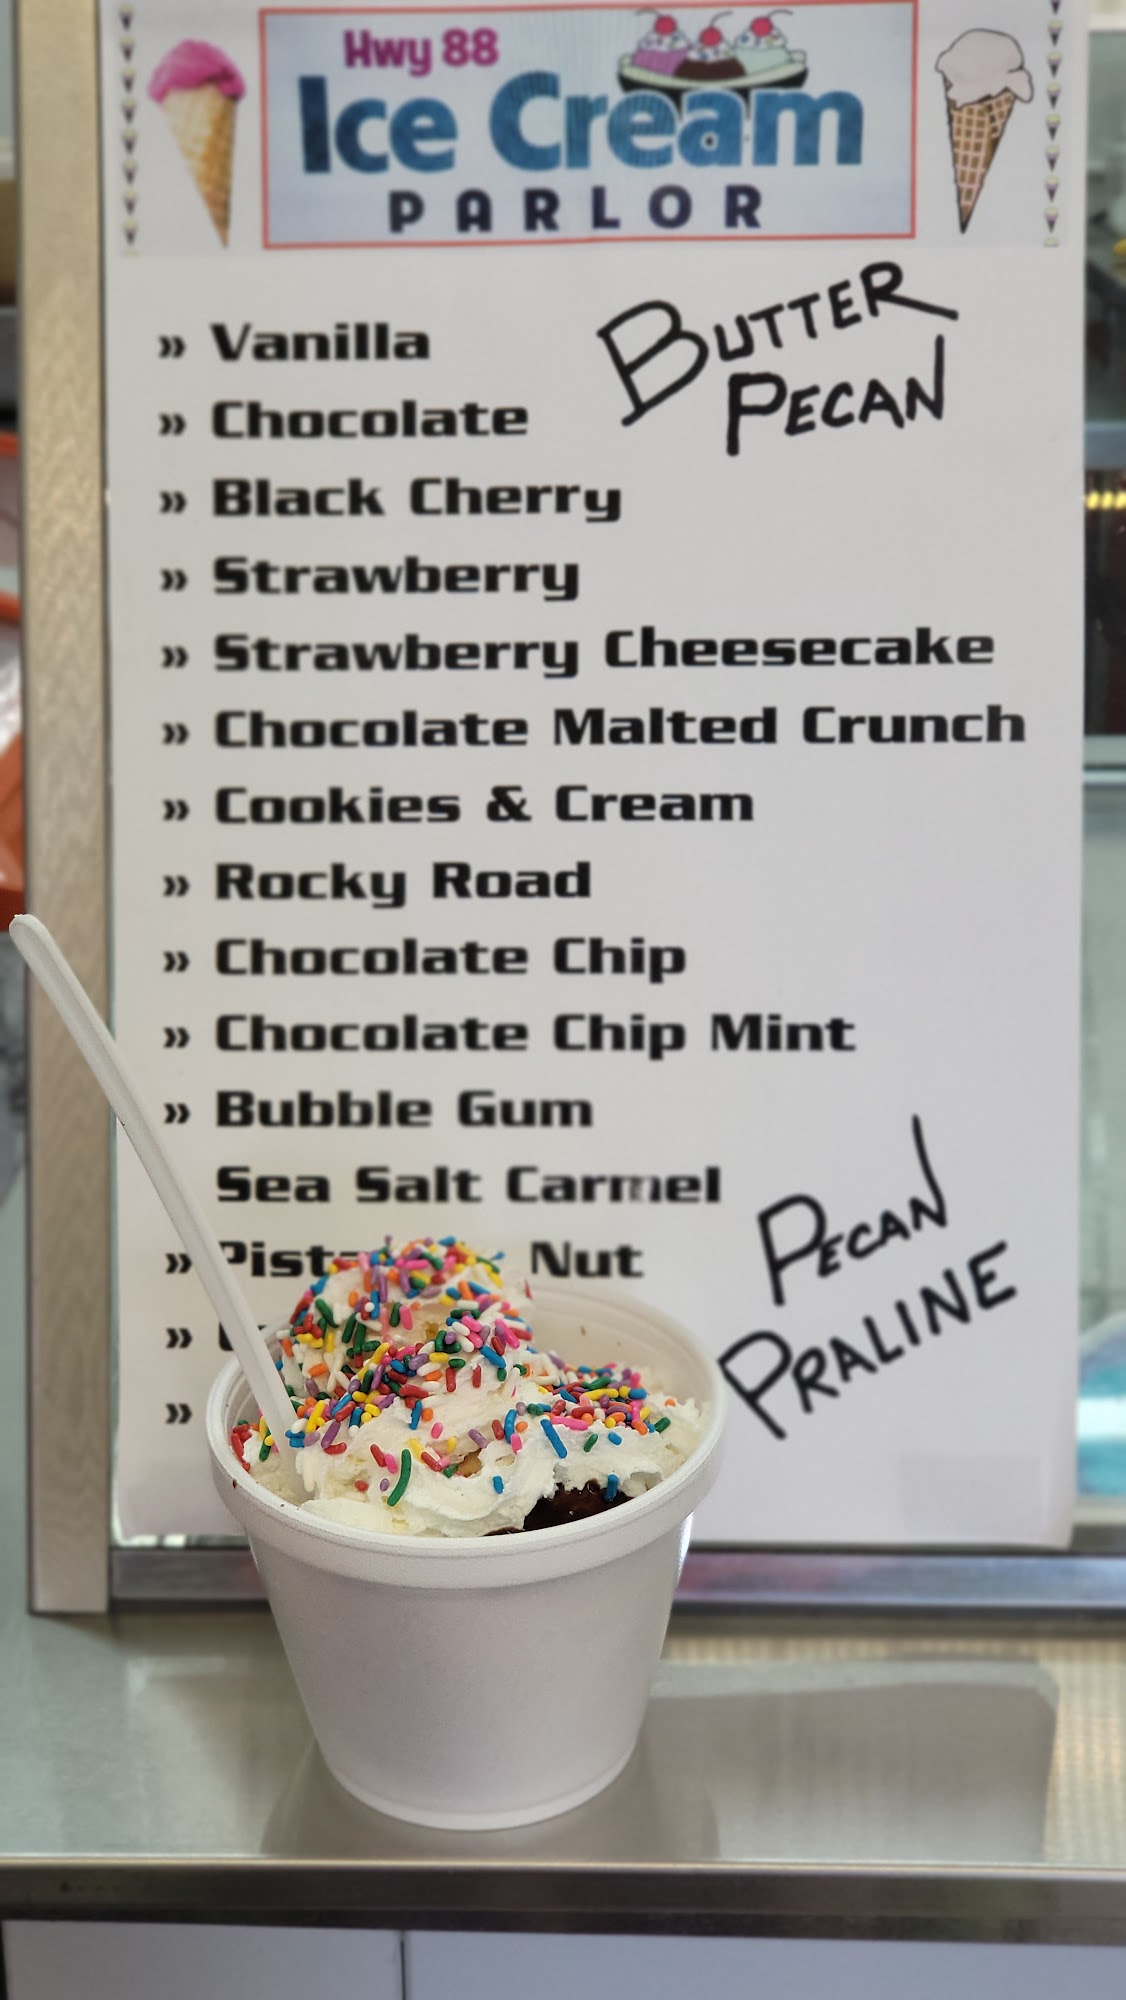 Hwy 88
Ice Cream
PARLOR
BUTTER
PECAN
» Vanilla
» Chocolate
» Black Cherry
» Strawberry
» Strawberry Cheesecake
» Chocolate Malted Crunch
» Cookies & Cream
» Rocky Road
» Chocolate Chip
» Chocolate Chip Mint
» Bubble Gum
Sea Salt Carmel
» Nut
»
»
PECAN
PRALINE